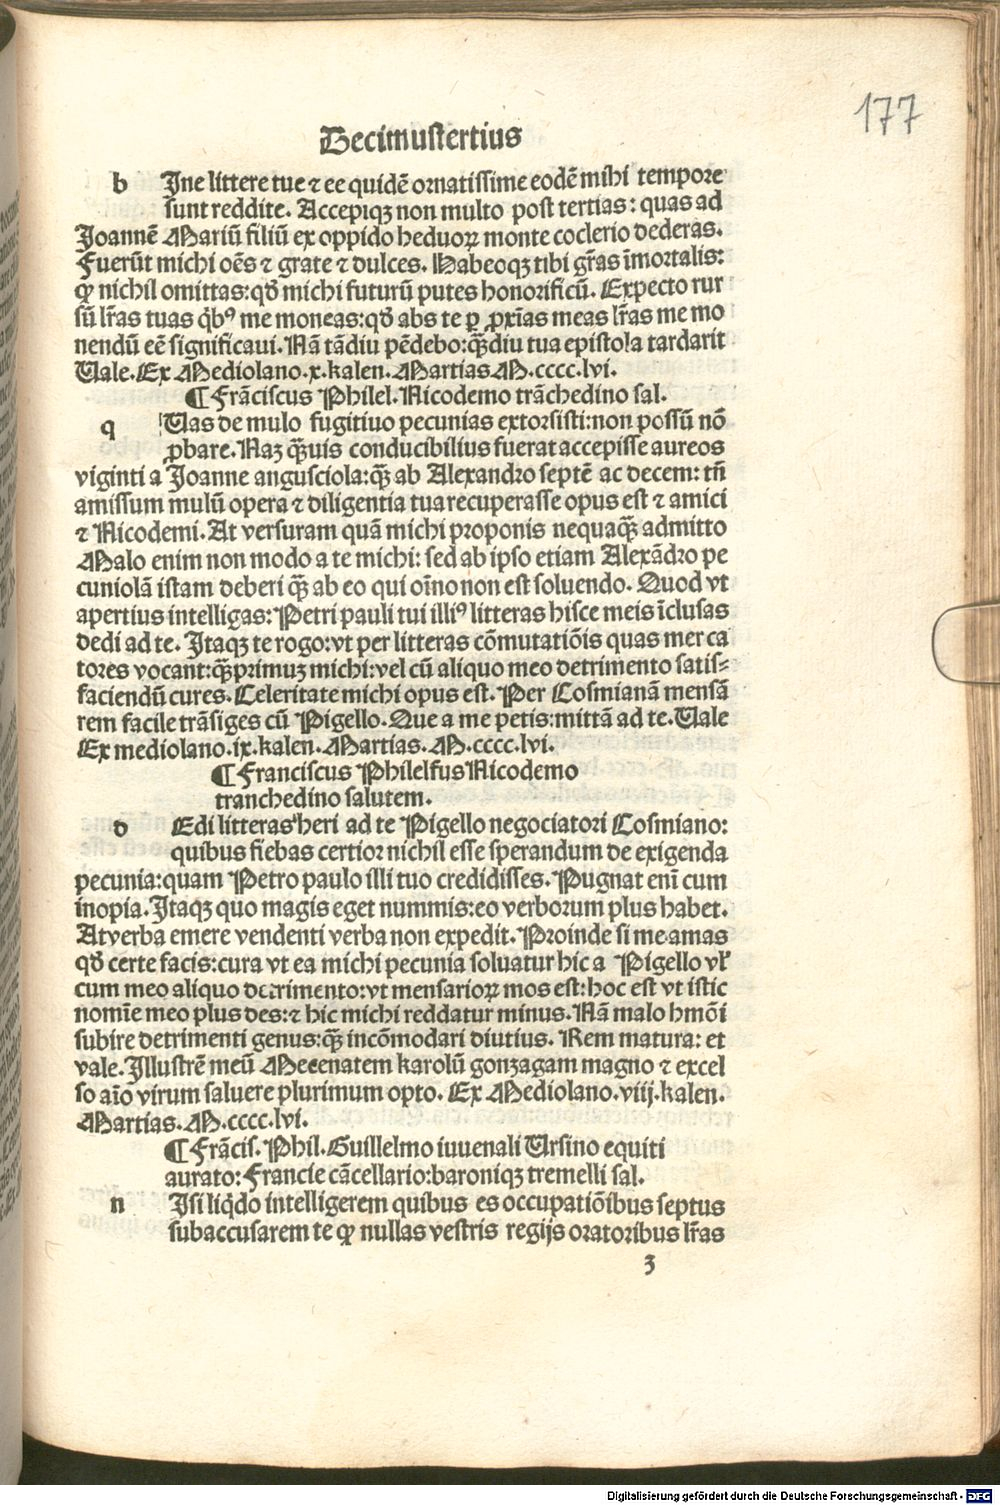 177
Decimustertius
b Ine littere tue ⁊ ee quidē ornatissime eodē mihi tempore
sunt reddite. Accepiqꝫ non multo post tertias: quas ad
Joannē Mariū filiū ex oppido heduoꝝ monte coclerio dederas.
Fuerūt michi oēs ⁊ grate ⁊ dulces. Habeoqꝫ tibi gr̄as īmortalis:
ꝙ nichil omittas: qd̄ michi futurū putes honorificū. Expecto rur
sū lr̄as tuas q̇bꝰ me moneas: qd̄ abs te ꝑ ꝓxīas meas lr̄as me mo
nendū eē significaui. Nā tādiu pēdebo: qꝫ̄diu tua epistola tardarit
Vale. Ex Mediolano. x. kalen. Martias M. cccc. lvi.
¶ Frāciscus Philel. Nicodemo trāchedino sal.
q Vas de mulo fugitiuo pecunias extorsisti: non possū nō
ꝓbare. Naꝫ qꝫ̄uis conducibilius fuerat accepisse aureos
viginti a Joanne angusciola: qꝫ̄ ab Alexandro septē ac decem: tn̄
amissum mulū opera ⁊ diligentia tua recuperasse opus est ⁊ amici
⁊ Nicodemi. At versuram quā michi proponis nequaqꝫ̄ admitto
Malo enim non modo a te michi: sed ab ipso etiam Alexādro pe
cuniolā istam deberi qꝫ̄ ab eo qui oīno non est soluendo. Quod vt
apertius intelligas: Petri pauli tui illiꝰ litteras hisce meis īclusas
dedi ad te. Itaqꝫ te rogo: vt per litteras cōmutatiōis quas merca
tores vocant: qꝫ̄primuꝫ michi: vel cū aliquo meo detrimento satis⸗
faciendū cures. Celeritate michi opus est. Per Cosmianā mensā
rem facile trāsiges cū Pigello. Que a me petis: mittā ad te. Vale
Ex mediolano. ix. kalen. Martias. M. cccc. lvi.
¶ Franciscus Philelfus Nicodemo
tranchedino salutem.
d Edi litteras heri ad te Pigello negociatori Cosmiano:
quibus fiebas certior nichil esse sperandum de exigenda
pecunia: quam Petro paulo illi tuo credidisses. Pugnat enī cum
inopia. Itaqꝫ quo magis eget nummis: eo verborum plus habet.
At verba emere vendenti verba non expedit. Proinde si me amas
qd̄ certe facis: cura vt ea michi pecunia soluatur hic a Pigello vl̄
cum meo aliquo detrimento: vt mensarioꝝ mos est: hoc est vt istic
nomīe meo plus des: ⁊ hic michi reddatur minus. Nā malo hmōi
subire detrimenti genus: qꝫ̄ incōmodari diutius. Rem matura: et
vale. Illustrē meū Mecenatem karolū gonzagam magno ⁊ excel
so aīo virum saluere plurimum opto. Ex Mediolano. viij. kalen.
Martias. M. cccc. lvi.
¶ Frācis. Phil. Guillelmo iuuenali Ursino equiti
aurato: Francie cācellario: baroniqꝫ tremelli sal.
n Isi liq̇do intelligerem quibus es occupatiōibus septus
subaccusarem te ꝙ nullas vestris regijs oratoribus lr̄as
ꝫ
Digitalisierung gefördert durch die Deutsche Forschungsgemeinschaft - DFG